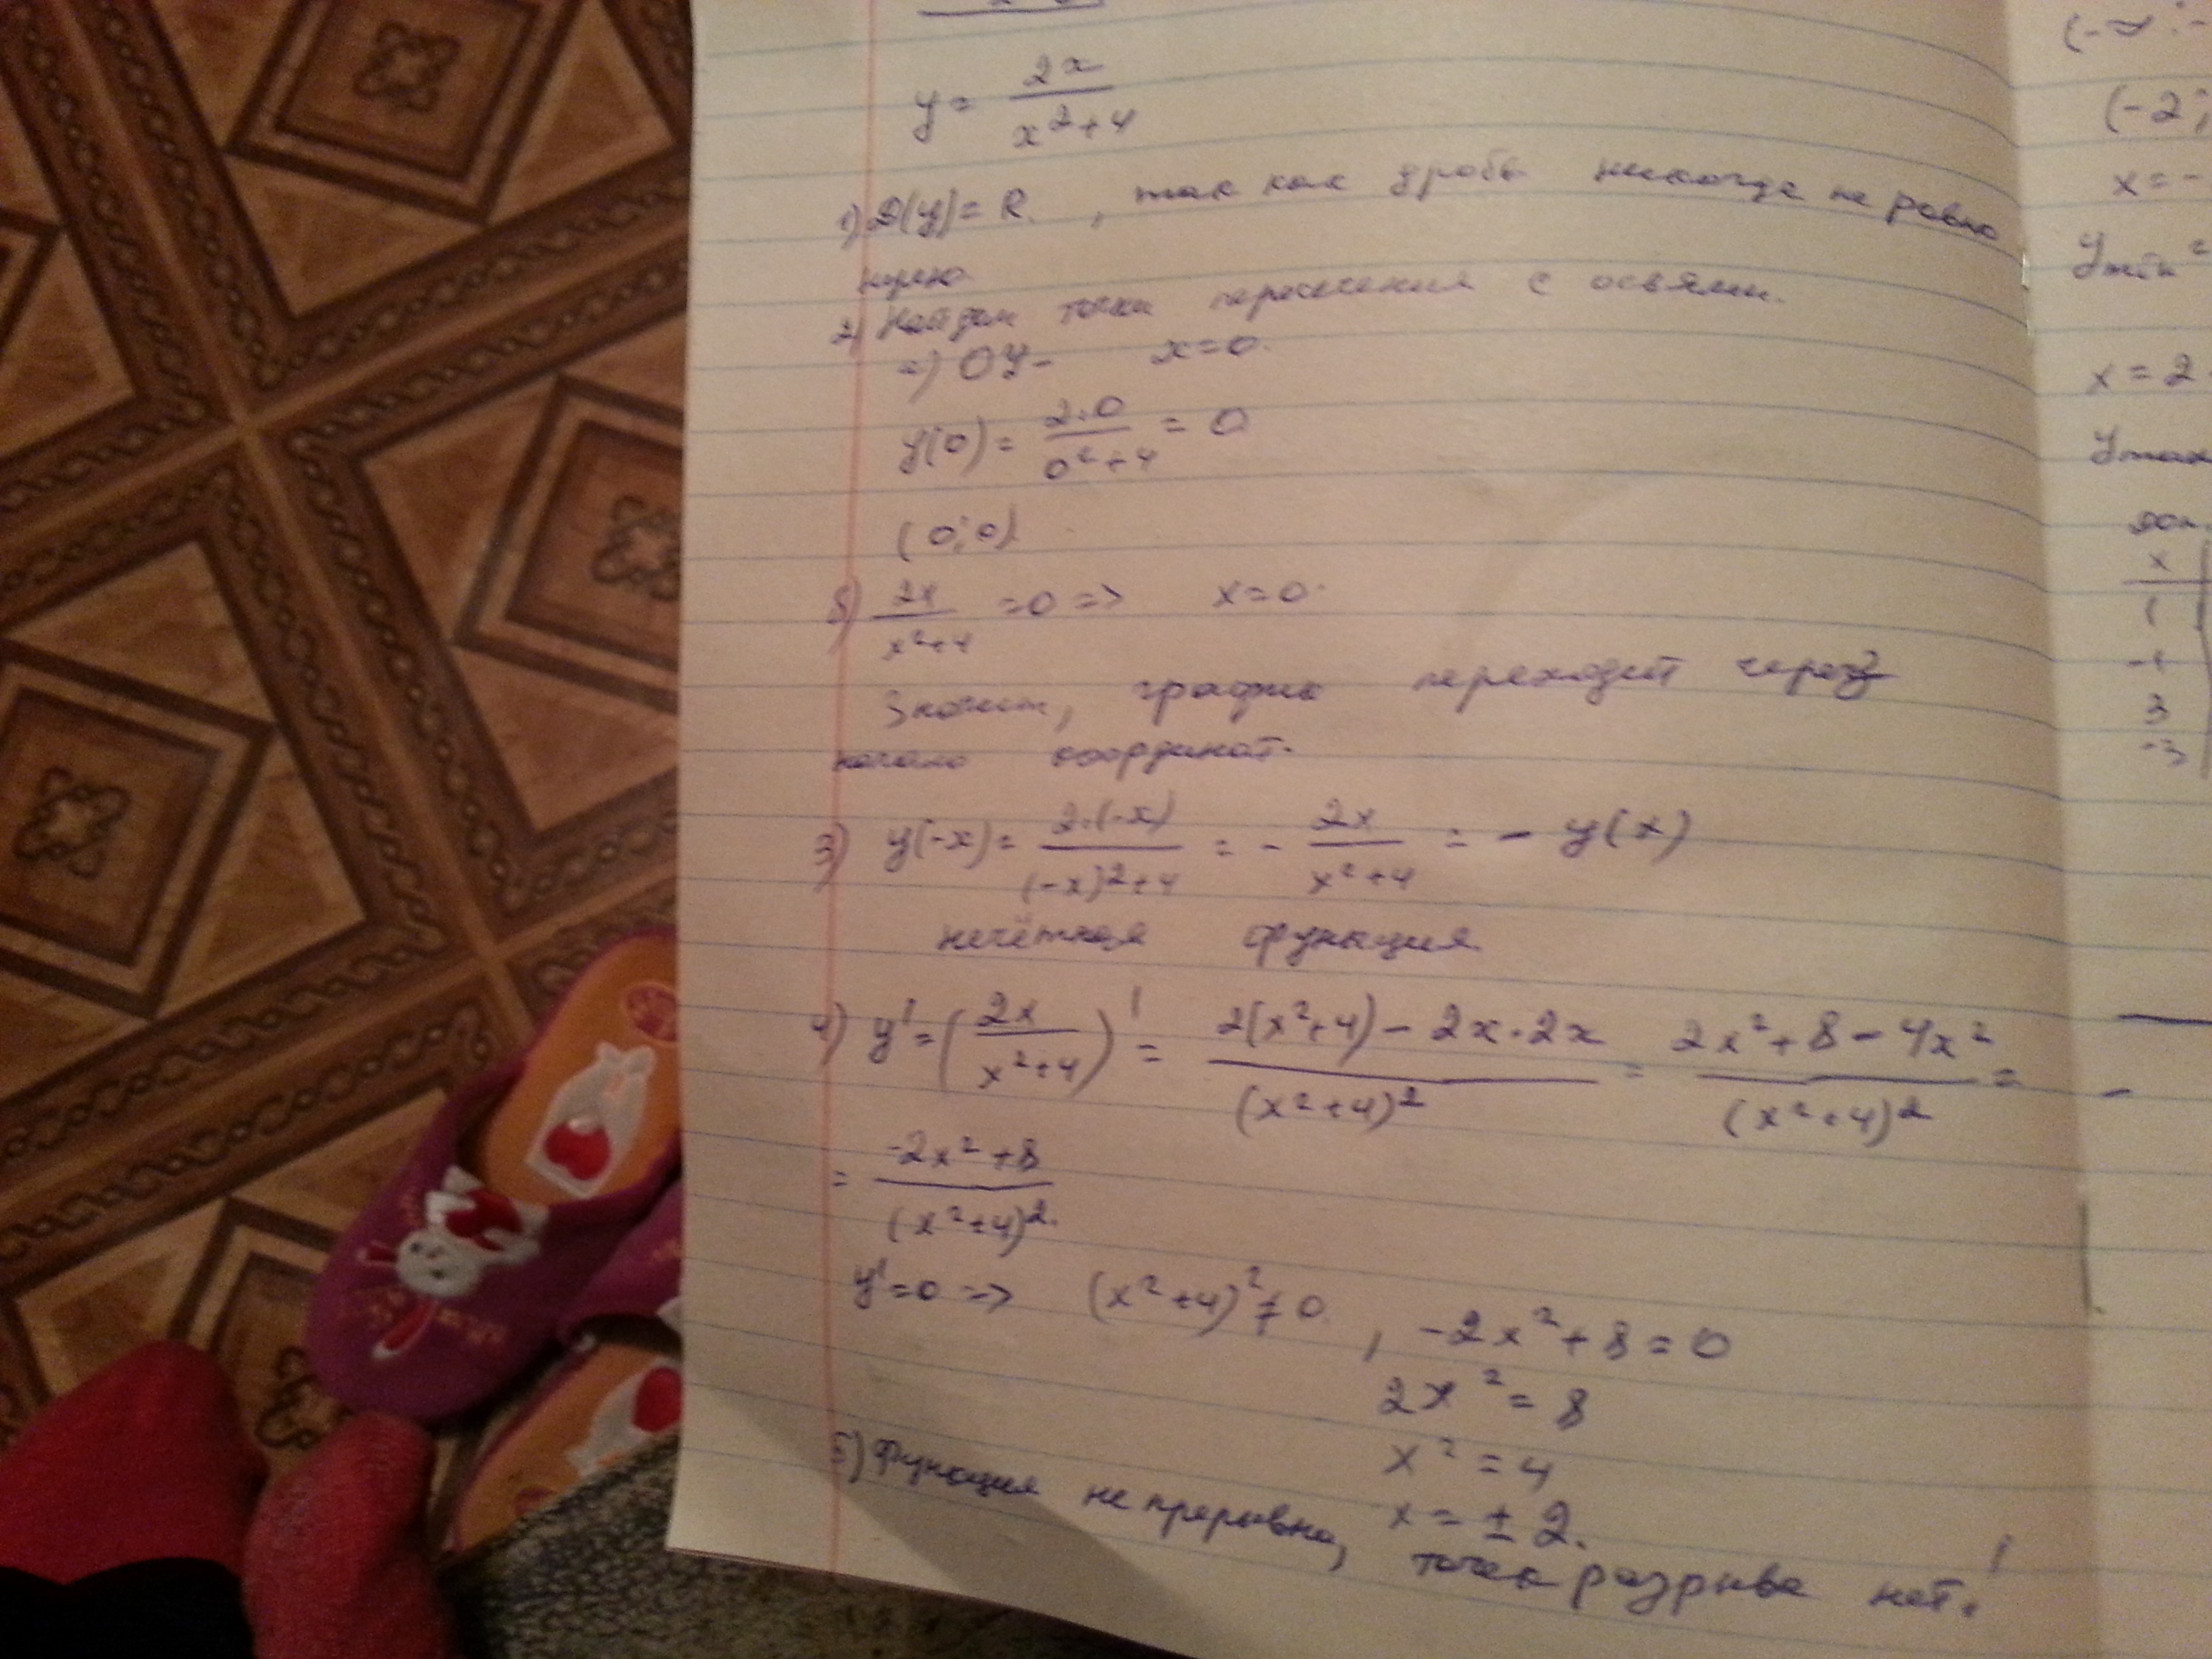 y = 2x / (x² + 4)
1) D(y) = R. , так как дробь никогда не равна
нулю
2) Найдем точки пересечения с осями.
а) OY - x = 0.
y(0) = (2·0) / (0² + 4) = 0
(0; 0)
б) 2x / (x² + 4) = 0 => x = 0.
Значит, график переходит через
начало координат.
3) y(-x) = (2·(-x)) / ((-x)² + 4) = - 2x / (x² + 4) = - y(x)
нечётная функция
4) y' = (2x / (x² + 4))' = (2(x² + 4) - 2x·2x) / (x² + 4)² = (2x² + 8 - 4x²) / (x² + 4)² =
= (-2x² + 8) / (x² + 4)².
y' = 0 => (x² + 4)² ≠ 0 , -2x² + 8 = 0
2x² = 8
x² = 4
x = ± 2.
5) Функция непрерывна, точек разрыва нет!
(-2;
x = -
y min =
x = 2
y max
доп.
x
1
-1
3
-3